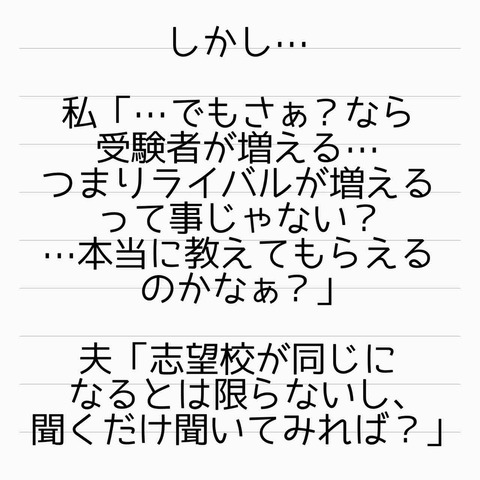 しかし…
私「…でもさぁ？なら
受験者が増える…
つまりライバルが増える
って事じゃない？
…本当に教えてもらえる
のかなぁ？」
夫「志望校が同じに
なるとは限らないし、
聞くだけ聞いてみれば？」